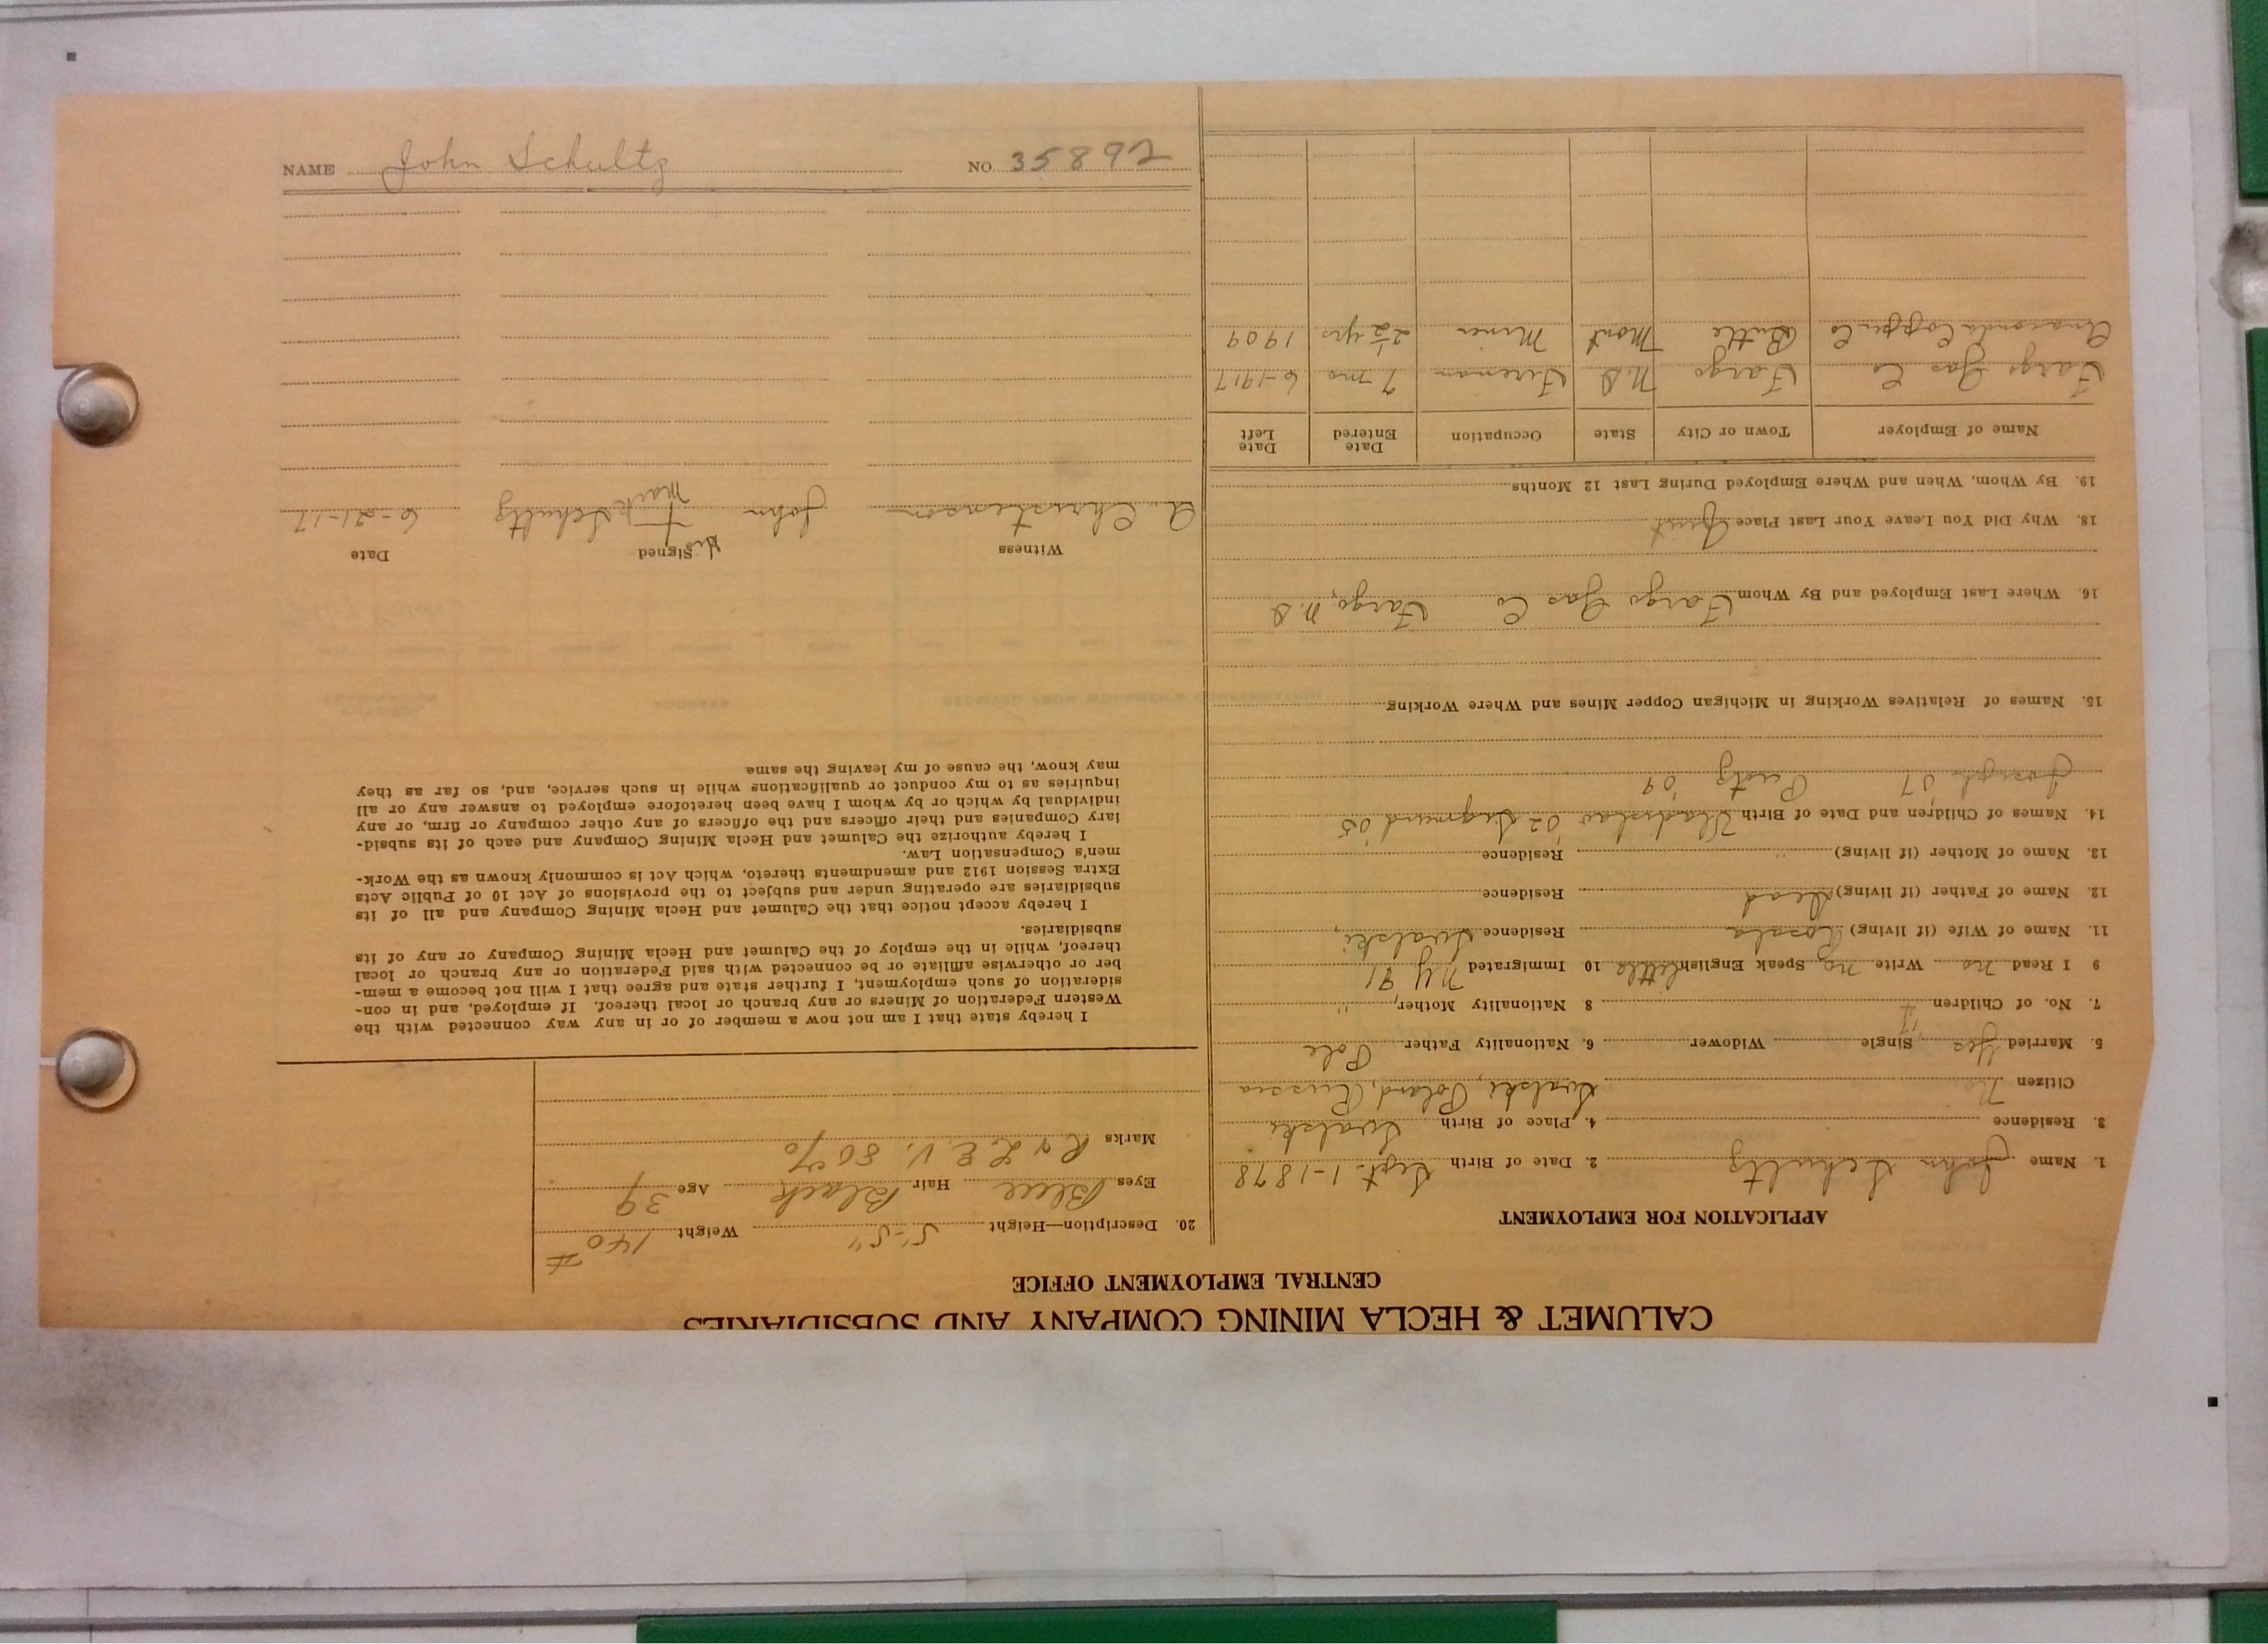 CALUMET & HECLA MINING COMPANY AND SUBSIDIARIES
CENTRAL EMPLOYMENT OFFICE
APPLICATION FOR EMPLOYMENT
1. Name John Schultz 2. Date of Birth Sept. 1-1878
3. Residence 4. Place of Birth Suvalski
Citizen No Suvalski, Poland, Russia
5. Married Yes, Single Widower 6. Nationality Father Pole
7. No. of Children 4 8. Nationality Mother, "
9 I Read no Write no Speak English little 10 Immigrated NY 91
11. Name of Wife (if living) Rosala Residence Suvalski,
12. Name of Father (if living) Dead Residence
13. Name of Mother (if living) " Residence
14. Names of Children and Date of Birth Vladislav '02 Sigmund '05
Joseph '07 '09
15. Names of Relatives Working in Michigan Copper Mines and Where Working
16. Where Last Employed and By Whom Fargo Gas Co Fargo, N.D
18. Why Did You Leave Your Last Place Quit
19. By Whom, When and Where Employed During Last 12 Months
Name of Employer Town or City State Occupation Date Entered Date Left
Fargo Gas Co Fargo N.D Fireman 7 mo 6-1917
Anaconda Copper Co Butte Mont Miner 2½ yrs 1909
20. Description—Height 5'-5" Weight 140 #
Eyes Blue Hair Black Age 39
Marks R & L E. V. 80%
I hereby state that I am not now a member of or in any way connected with the
Western Federation of Miners or any branch or local thereof. If employed, and in con-
sideration of such employment, I further state and agree that I will not become a mem-
ber or otherwise affiliate or be connected with said Federation or any branch or local
thereof, while in the employ of the Calumet and Hecla Mining Company or any of its
subsidiaries.
I hereby accept notice that the Calumet and Hecla Mining Company and all of its
subsidiaries are operating under and subject to the provisions of Act 10 of Public Acts
Extra Session 1912 and amendments thereto, which Act is commonly known as the Work-
men's Compensation Law.
I hereby authorize the Calumet and Hecla Mining Company and each of its subsid-
iary Companies and their officers and the officers of any other company or firm, or any
individual by which or by whom I have been heretofore employed to answer any or all
inquiries as to my conduct or qualifications while in such service, and, so far as they
may know, the cause of my leaving the same
Witness Signed Date
His
A. Christenson John + Schultz 6-21-17
Mark
NAME John Schultz NO. 35892